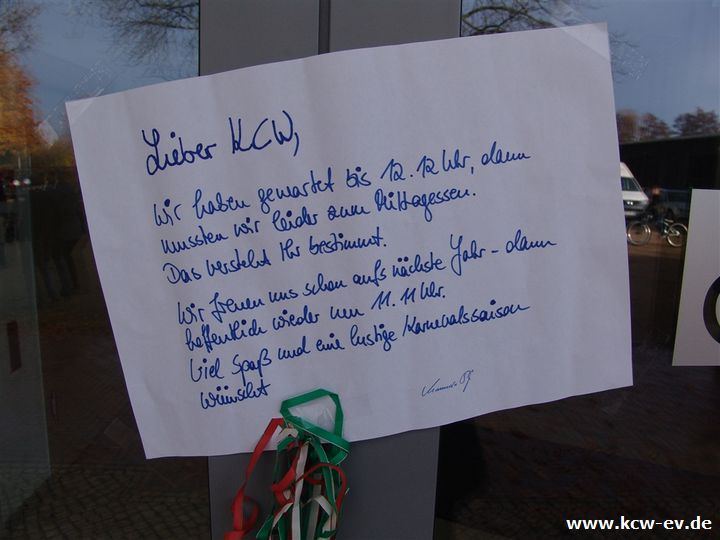 Lieber KCW,
Wir haben gewartet bis 12.12 Uhr, dann
mussten wir leider zum Mittagessen.
Das versteht Ihr bestimmt.
Wir freuen uns schon aufs nächste Jahr - dann
hoffentlich wieder um 11.11 Uhr.
Viel Spaß und eine lustige Karnevalssaison
wünscht
www.kcw-ev.de